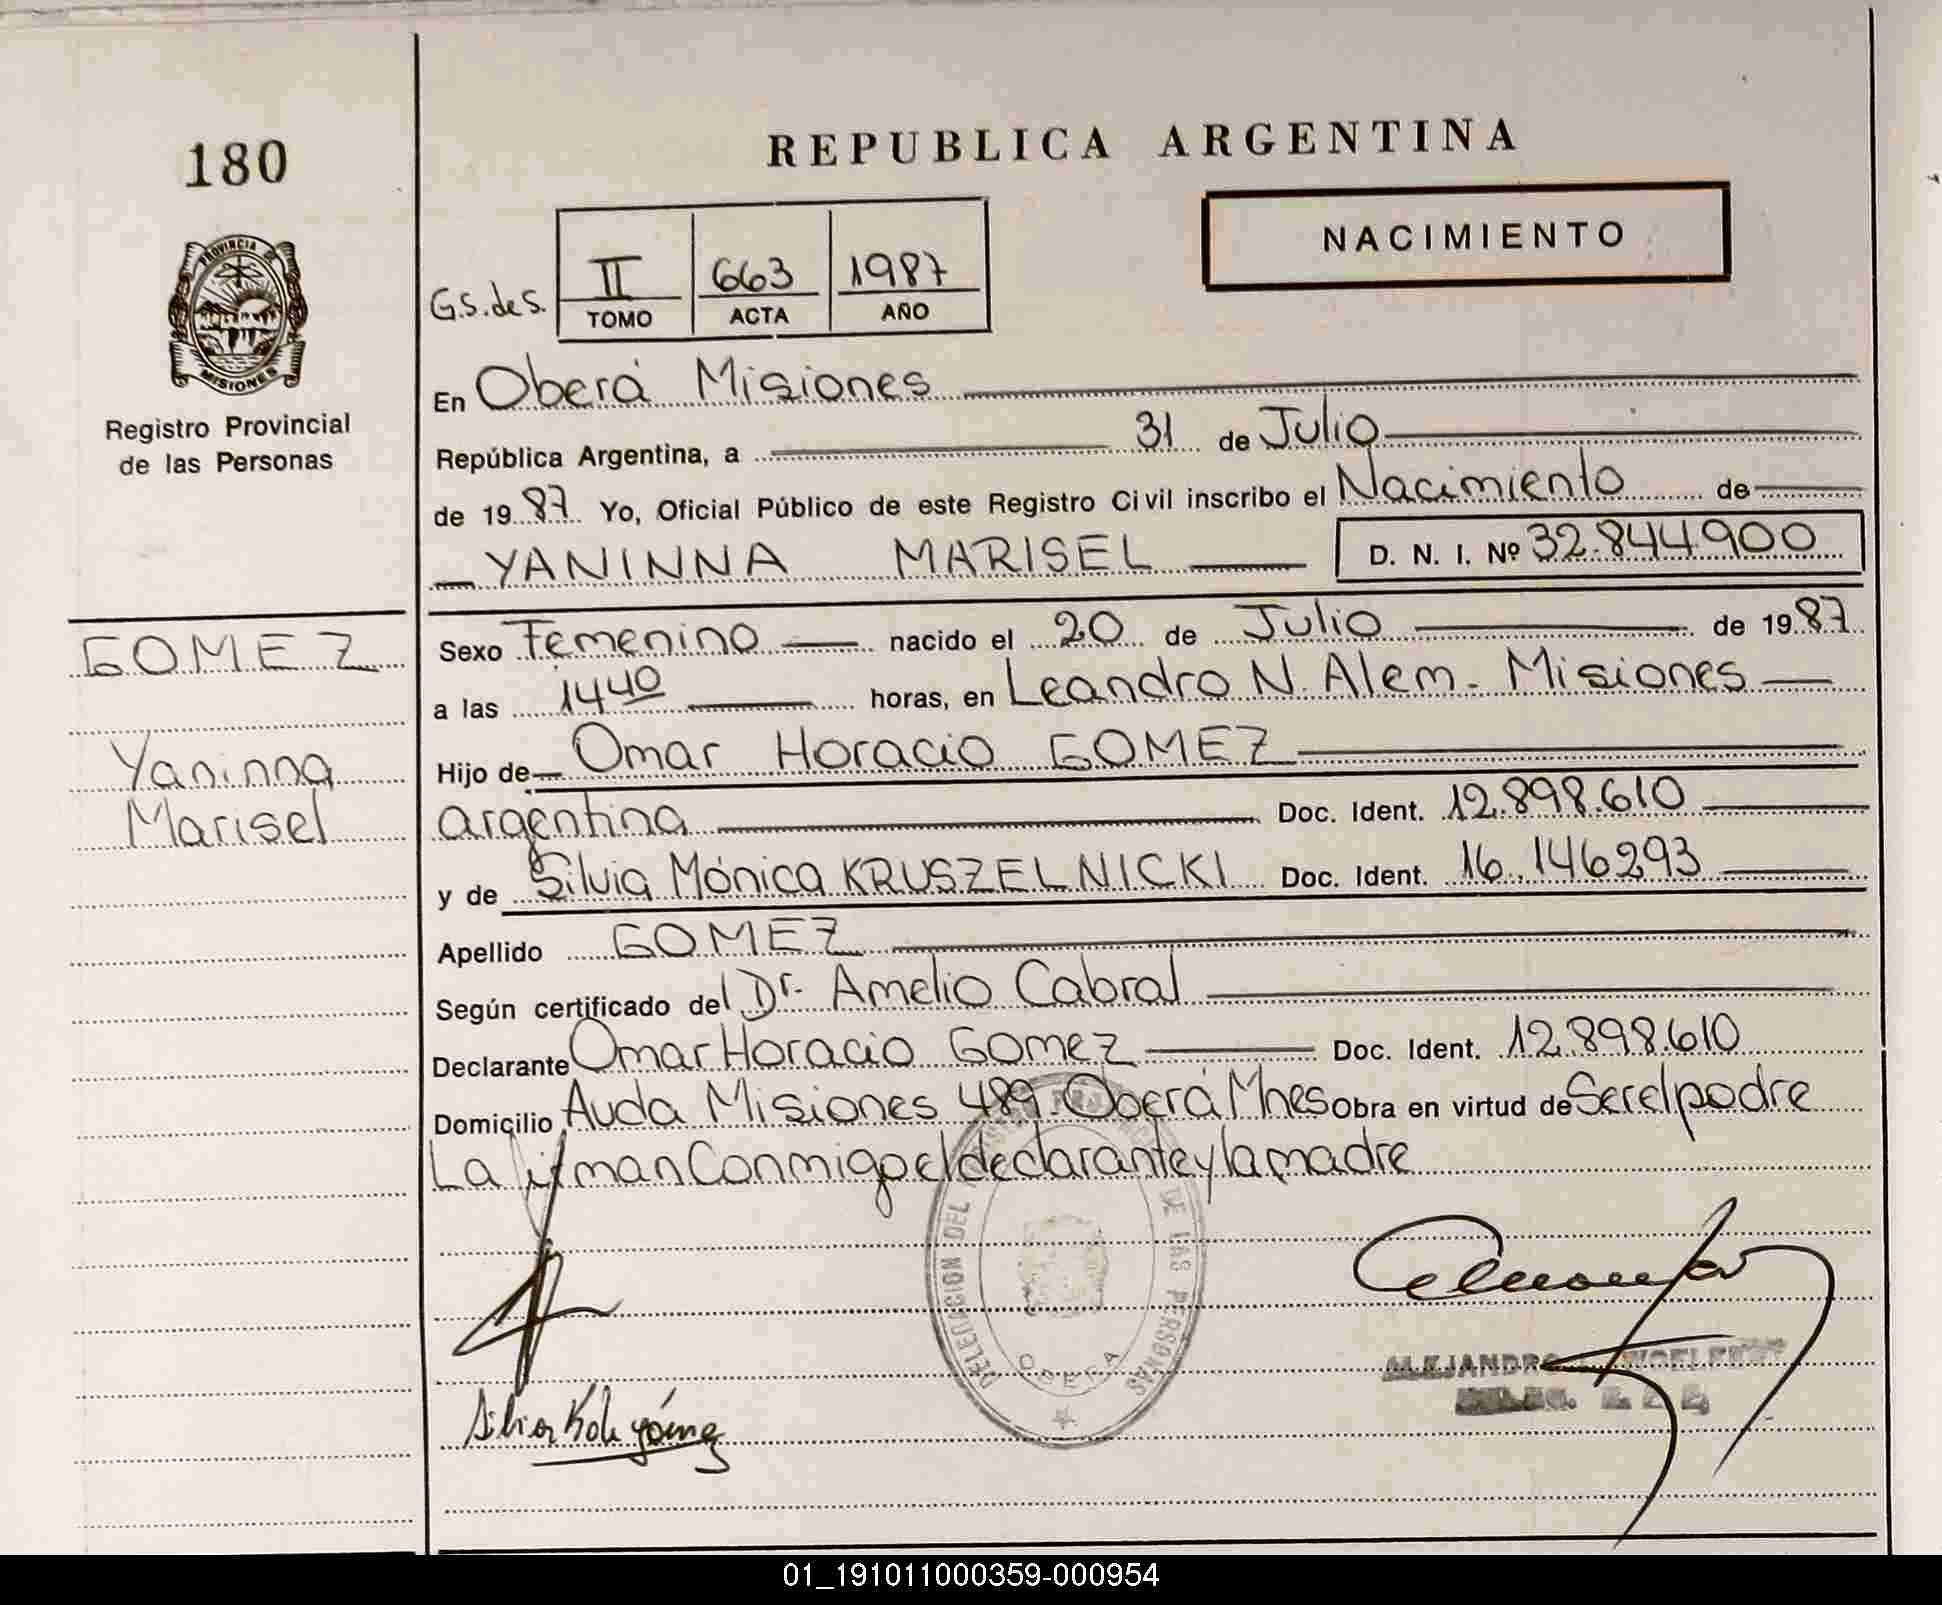 180
PROVINCIA DE
MISIONES
Registro Provincial
de las Personas
GOMEZ
Yaninna
Marisel
REPUBLICA ARGENTINA
NACIMIENTO
G.S. de S.
II 663 1987
TOMO ACTA AÑO
En Oberá Misiones
República Argentina, a 31 de Julio
de 1987 Yo, Oficial Público de este Registro Civil inscribo el Nacimiento de
YANINNA MARISEL D. N. I. Nº 32.844.900
Sexo Femenino nacido el 20 de Julio de 1987
a las 1440 horas, en Leandro N. Alem. Misiones
Hijo de Omar Horacio GOMEZ
argentina Doc. Ident. 12.898.610
y de Silvia Mónica KRUSZELNICKI Doc. Ident. 16.146293
Apellido GOMEZ
Según certificado del Dr. Amelio Cabral
Declarante Omar Horacio Gomez Doc. Ident. 12.898.610
Domicilio Avda Misiones 489. Oberá Mnes Obra en virtud de Ser el padre
La firman Conmigo el declarante y la madre
DELEGACION DEL DE LAS PERSONAS
OBERA
ALEJANDRO
01_191011000359-000954